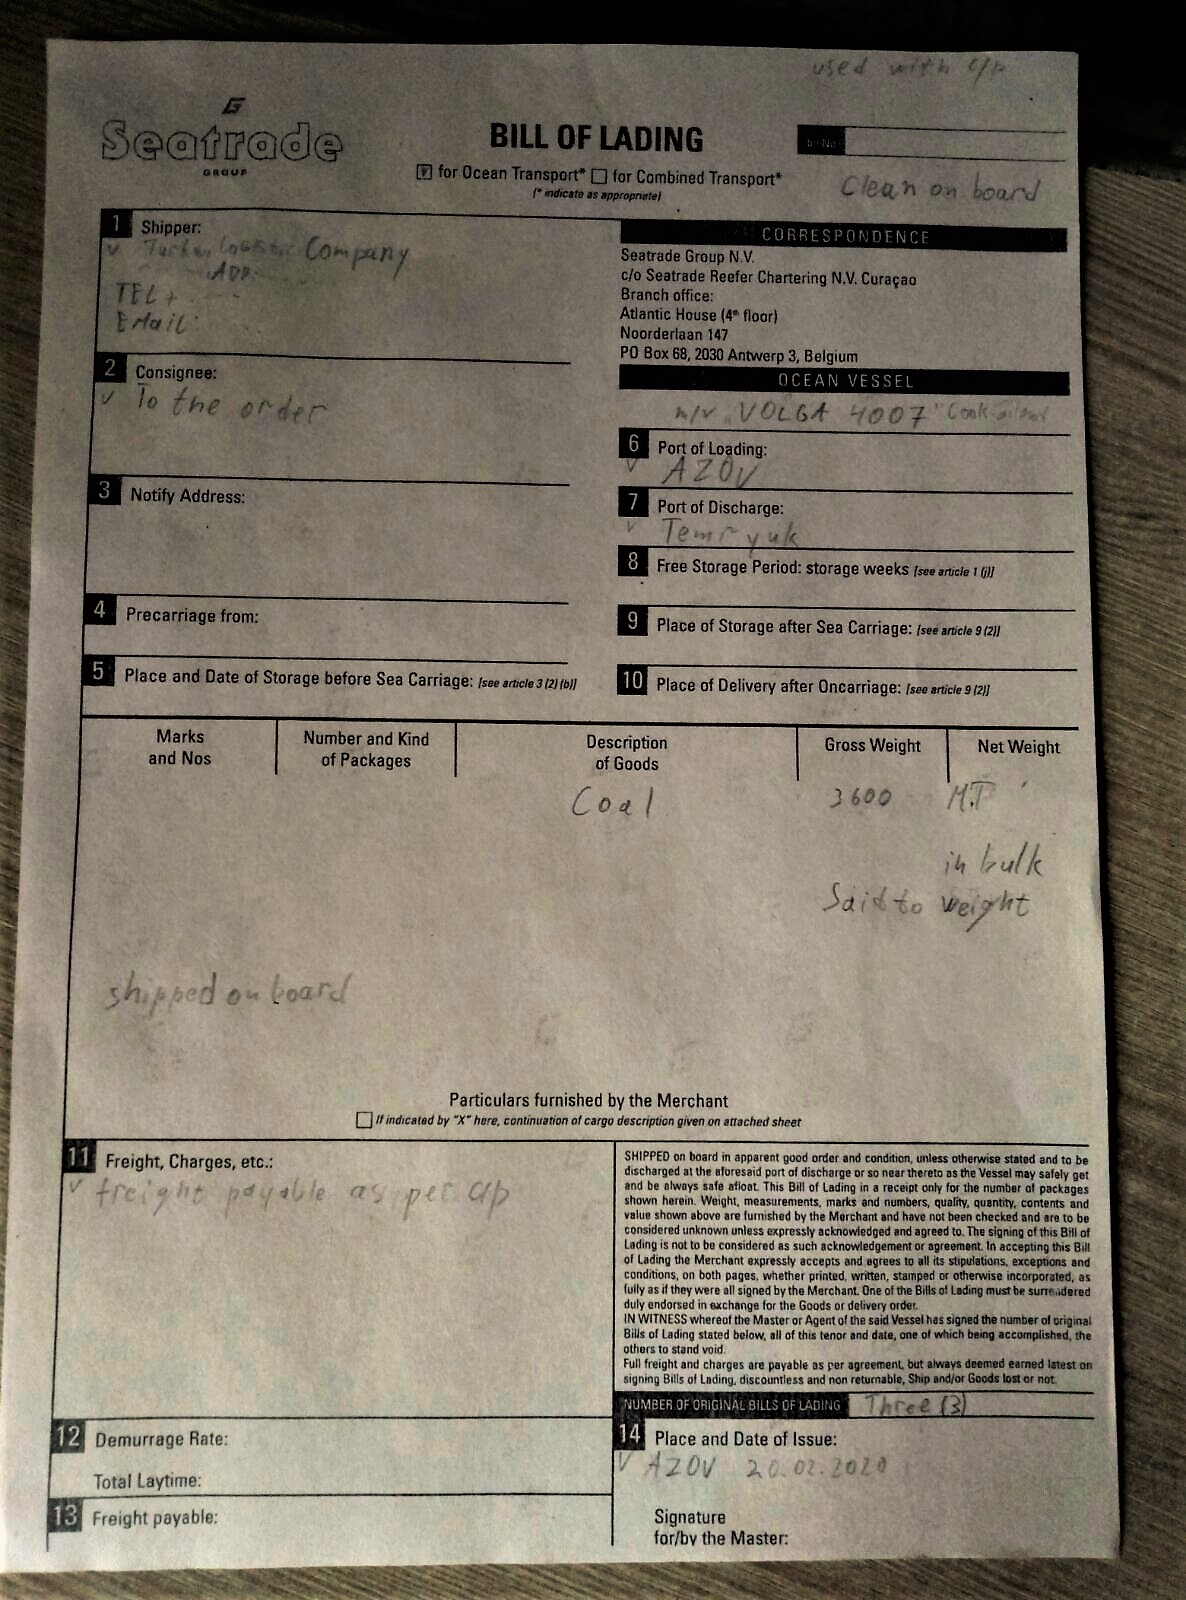 used with c/p
Seatrade
GROUP
BILL OF LADING
for Ocean Transport* for Combined Transport*
(* indicate as appropriate)
Clean on board
1 Shipper:
Company
ADR.
TEL +
EMail:
CORRESPONDENCE
Seatrade Group N.V.
c/o Seatrade Reefer Chartering N.V. Curaçao
Branch office:
Atlantic House (4th floor)
Noorderlaan 147
PO Box 68, 2030 Antwerp 3, Belgium
2 Consignee:
To the order
OCEAN VESSEL
m/v "VOLGA 4007"
3 Notify Address:
6 Port of Loading:
AZOV
7 Port of Discharge:
Temryuk
8 Free Storage Period: storage weeks [see article 1 (j)]
4 Precarriage from:
9 Place of Storage after Sea Carriage: [see article 9 (2)]
5 Place and Date of Storage before Sea Carriage: [see article 3 (2) (b)]
10 Place of Delivery after Oncarriage: [see article 9 (2)]
Marks and Nos
Number and Kind of Packages
Description of Goods
Gross Weight
Net Weight
Coal 3600 M.T
in bulk
Said to weight
shipped on board
Particulars furnished by the Merchant
If indicated by "X" here, continuation of cargo description given on attached sheet
11 Freight, Charges, etc.:
freight payable as per cp
SHIPPED on board in apparent good order and condition, unless otherwise stated and to be
discharged at the aforesaid port of discharge or so near thereto as the Vessel may safely get
and be always safe afloat. This Bill of Lading in a receipt only for the number of packages
shown herein. Weight, measurements, marks and numbers, quality, quantity, contents and
value shown above are furnished by the Merchant and have not been checked and are to be
considered unknown unless expressly acknowledged and agreed to. The signing of this Bill of
Lading is not to be considered as such acknowledgement or agreement. In accepting this Bill
of Lading the Merchant expressly accepts and agrees to all its stipulations, exceptions and
conditions, on both pages, whether printed, written, stamped or otherwise incorporated, as
fully as if they were all signed by the Merchant. One of the Bills of Lading must be surrendered
duly endorsed in exchange for the Goods or delivery order.
IN WITNESS whereof the Master or Agent of the said Vessel has signed the number of original
Bills of Lading stated below, all of this tenor and date, one of which being accomplished, the
others to stand void.
Full freight and charges are payable as per agreement, but always deemed earned latest on
signing Bills of Lading, discountless and non returnable, Ship and/or Goods lost or not.
NUMBER OF ORIGINAL BILLS OF LADING Three (3)
12 Demurrage Rate:
Total Laytime:
14 Place and Date of Issue:
AZOV 20.02.2020
13 Freight payable:
Signature
for/by the Master: